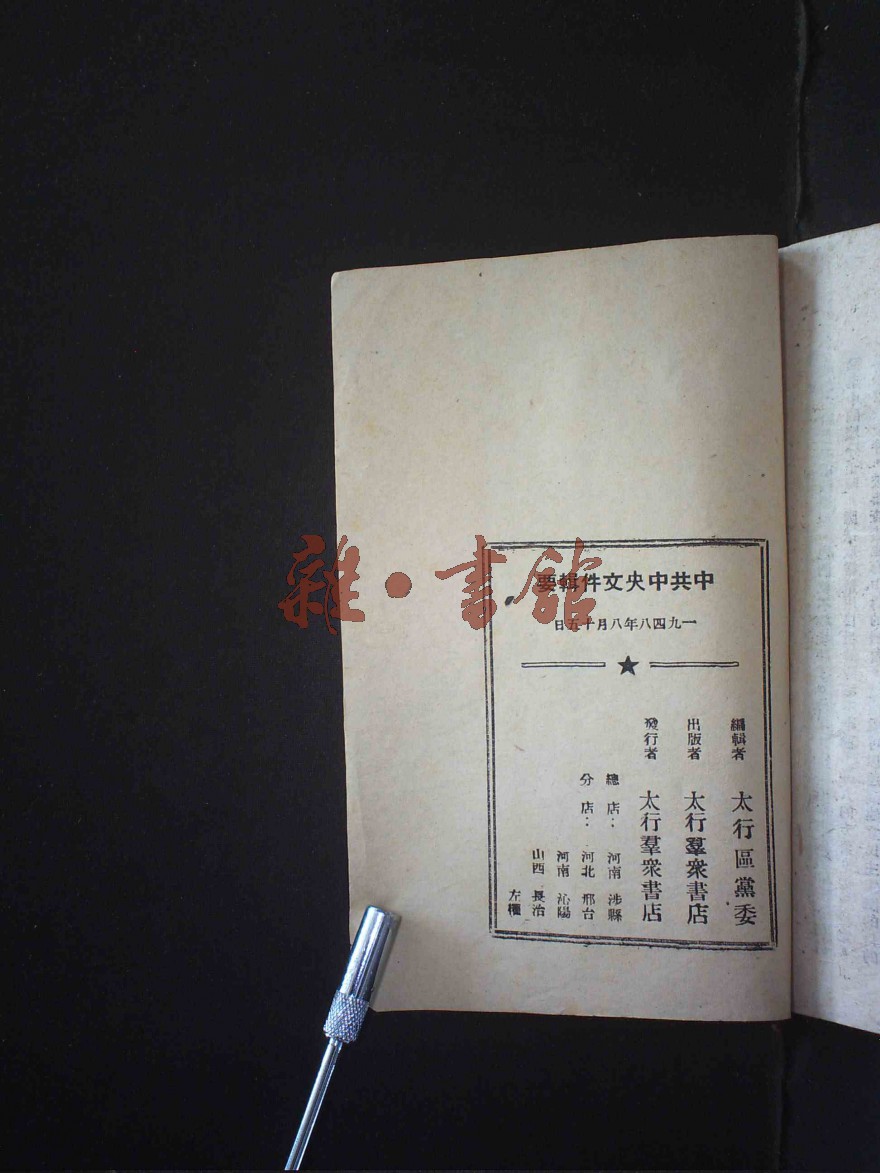 中共中央文件輯要
一九四八年八月十五日
編輯者 太行區黨委
出版者 太行羣衆書店
發行者 太行羣衆書店
總店：河南 涉縣
分店：河北 邢台
河南 沁陽
山西 長治
左權
雜·書館